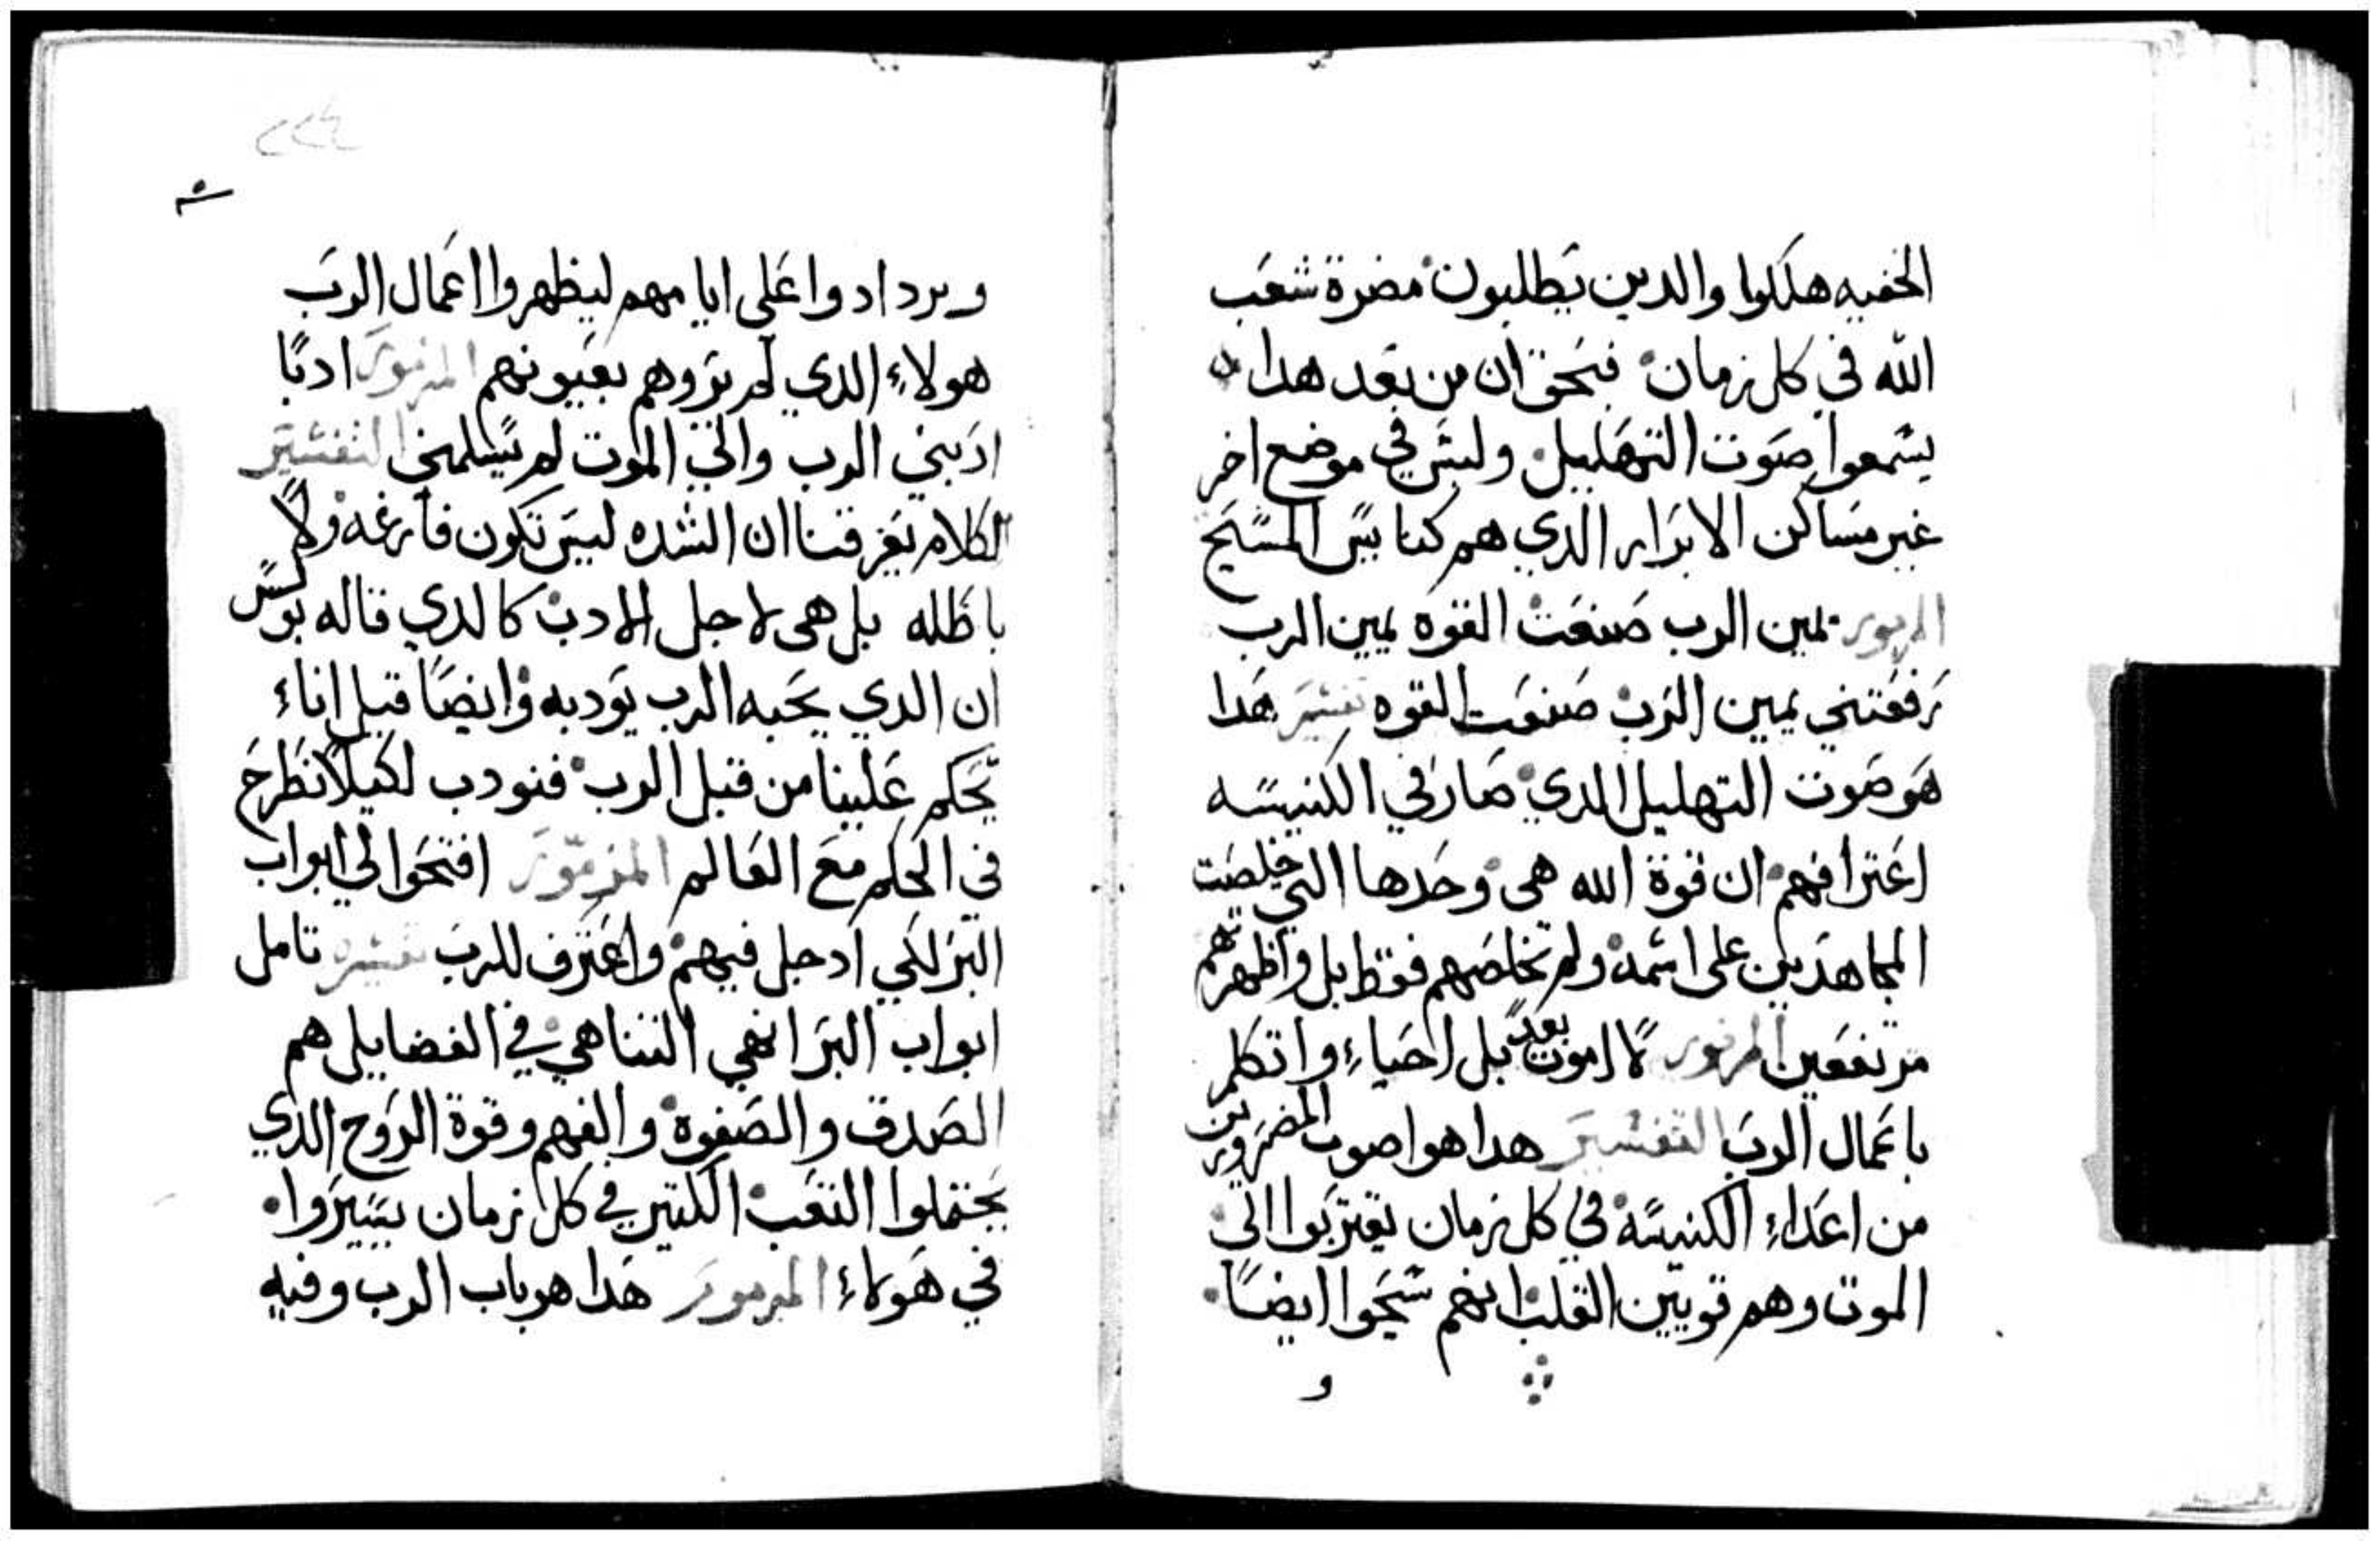 الخفيه هلكوا والدين يطلبون مضرة شعب
الله في كل زمان فبحق ان من بعد هدا
يسمعوا صوت التهليل وليس في موضع اخر
غير مساكن الابرار الدي هم كنايس المسيح
المزمور يمين الرب صنعت القوه يمين الرب
رفعتني يمين الرب صنعت القوه تفسير هدا
هو صوت التهليل الدي صار في الكنيسه
اعترافهم ان قوة الله هي وحدها التي خلصت
المجاهدين على اسمه ولم تخلصهم فقط بل واظهرتهم
مرتفعين المزمور لا اموت بعد بل احياء واتكلم
باعمال الرب التفسير هدا هو اصوات المضرورين
من اعداء الكنيسه في كل زمان يقتربوا الى
الموت وهم قويين القلب انهم سيحيوا ايضا
و
ويردادوا على ايامهم ليظهروا اعمال الرب
هولاء الدي لم يروهم بعيونهم المزمور ادبا
ادبني الرب والي الموت لم يسلمني التفسير
الكلام يعرفنا ان الشده ليس تكون فارغه ولا
باطله بل هي لاجل الادب كالدي قاله بولس
ان الدي يحبه الرب يودبه وايضا قيل اناء
يحكم علينا من قبل الرب فنودب لكيلا نطرح
في الحكم مع العالم المزمور افتحوا لي ابواب
البر لكي ادخل فيهم واعترف للرب تفسير تامل
ابواب البر انهي التناهي في الفضايل هم
الصدق والصفوة والفهم وقوة الروح الدي
يحتملوا التعب الكتير في كل زمان يسيروا
في هولاء المزمور هدا هو باب الرب وفيه